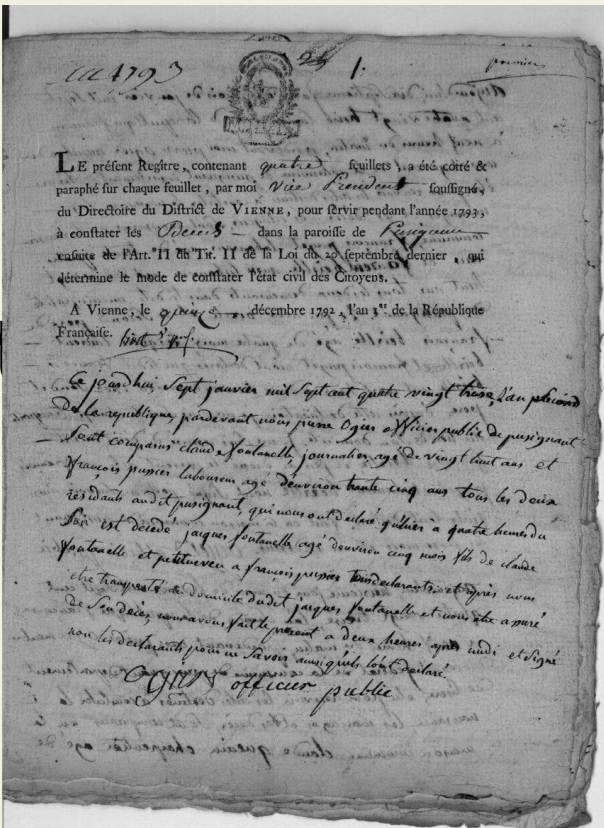 1793 25 1. premier
LE présent Regître, contenant quatre feuillets, a été cotté &
paraphé sur chaque feuillet, par moi vice President soussigné,
du Directoire du District de VIENNE, pour servir pendant l'année 1793,
à constater les Deces dans la paroisse de Pusignan
ensuite de l'Art. II du Tit. II de la Loi du 20 septembre dernier, qui
détermine le mode de constater l'état civil des Citoyens.
A Vienne, le quinze décembre 1792, l'an 1.er de la République
Française.
Ce jourdhui sept janvier mil sept cent quatre vingt treize, l'an second
de la republique, pardevant nous pierre Ogier officier public de pusignant
sont comparus claude fontanelle, journalier, agé de vingt huit ans et
françois pussier laboureur agé d'environ trante cinq ans tous les deux
résidants audit pusignant, qui nous ont declaré qu'hier à quatre heures du
soir est décedé jaques fontanelle agé d'environ cinq mois fils de claude
fontanelle et petit neveu a françois pussier tous declarants, et après nous
être transporté au domicile dudit jacques fontanelle et nous être assuré
de son deces, nous avons fait le présent a deux heures après midi et signé
non les declarants pour ne savoir ainsi qu'ils l'ont declaré.
Ogier officier public